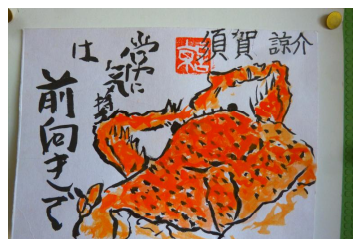 須賀 諒介
常に
気持
は
前向きで